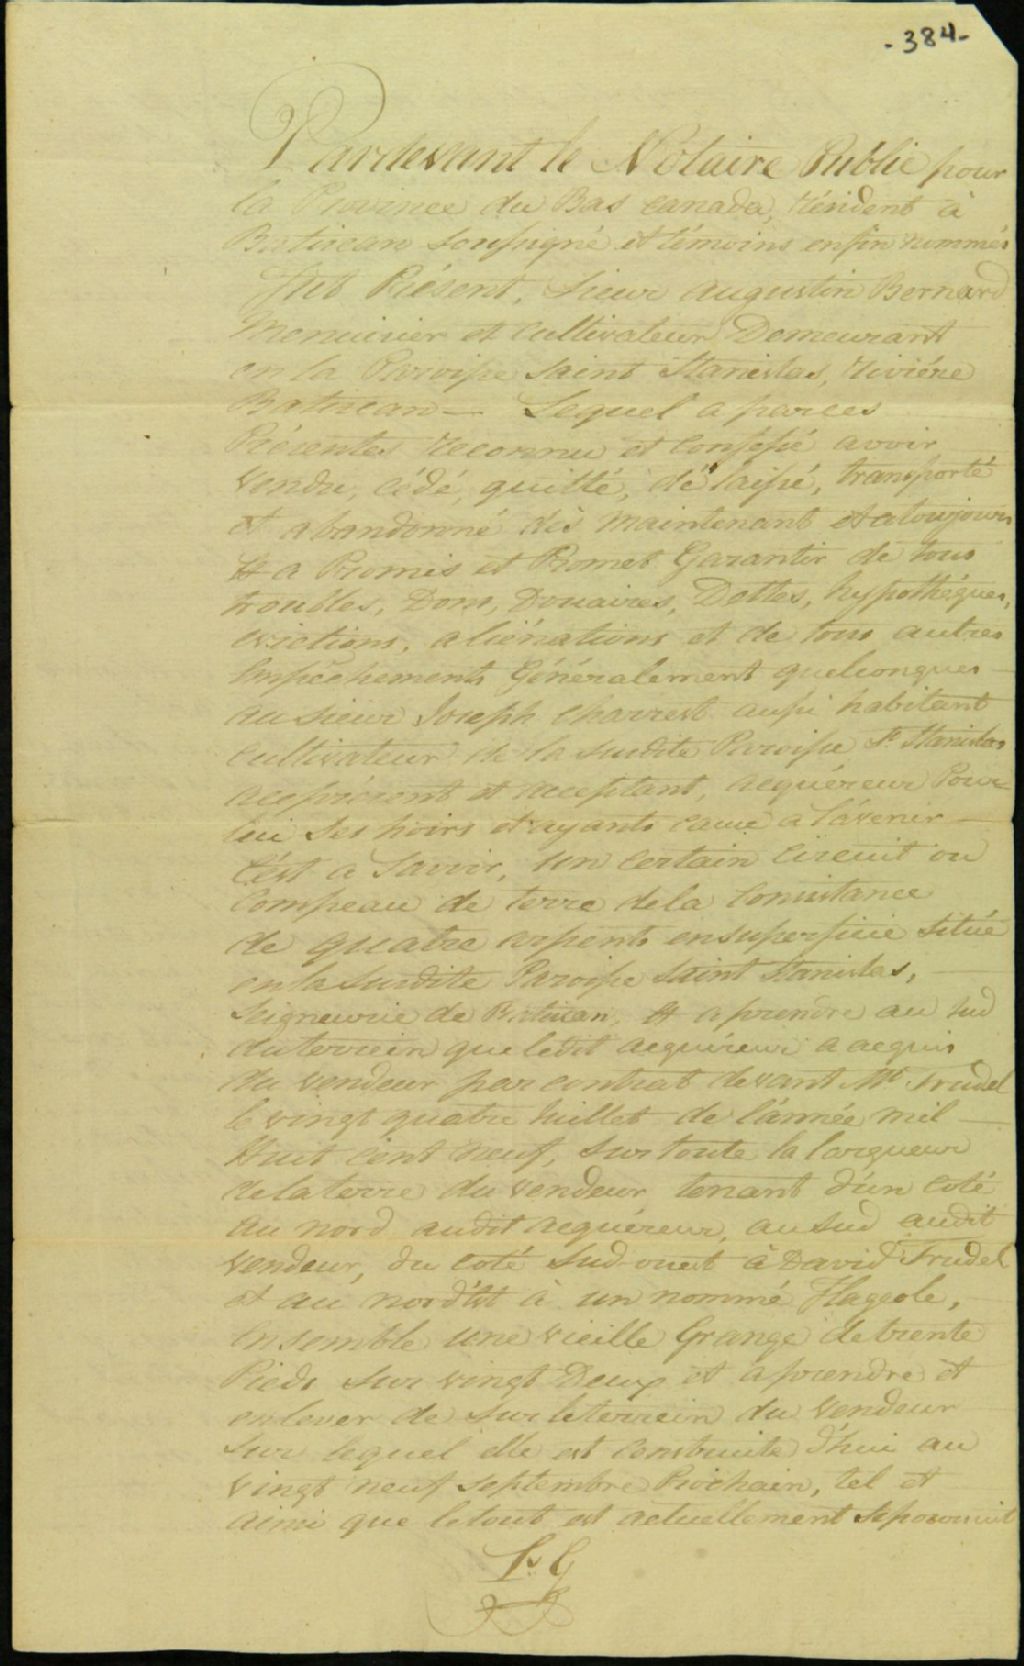 - 384 -
Pardevant le Notaire Public pour
la Province du Bas Canada, Résident à
Batiscan soussigné et témoins enfin nommés
Fut Présent, Sieur Augustin Bernard
Menuisier et cultivateur Demeurant
en la Paroisse Saint Stanislas, Riviére
Batiscan — Lequel a par ces
Présentes reconnu et confessé avoir
vendu, cédé, quitté, délaissé, transporté
et abandonné dès maintenant et a toujours
Et a Promis et Promet Garantir de tous
troubles, Dons, Douaires, Dettes, hypothéques,
evictions, aliénations et de tous autres
Empêchements Généralement quelconques
au sieur Joseph Charrest aussi habitant
cultivateur de la susdite Paroisse St. Stanislas
a ce présent et acceptant, acquéreur Pour
lui ses hoirs et ayants cause a l'avenir —
C'est a Savoir, un certain circuit ou
Compeau de terre de la Consistance
de quatre arpents en superficie situé
en la susdite Paroisse Saint Stanislas,
Seigneurie de Batiscan, Et a prendre au sud
du terrein que ledit acquéreur a acquis
du vendeur par contrat devant Mt. Trudel
le vingt quatre Juillet de l'année mil
Huit Cent neuf, sur toute la largueur
de la terre du vendeur tenant d'un coté
au nord audit acquéreur, au sud audit
vendeur, du coté Sud-ouest à David Trudel
et au nord'Est à un nommé Flageole,
ensemble une vieille Grange de trente
Pieds sur vingt Deux et a prendre et
enlever de sur le terrein du vendeur
sur lequel elle est construite d'hui au
vingt neuf septembre Prochain, tel et
ainsi que le tout est actuellement
Ls. G